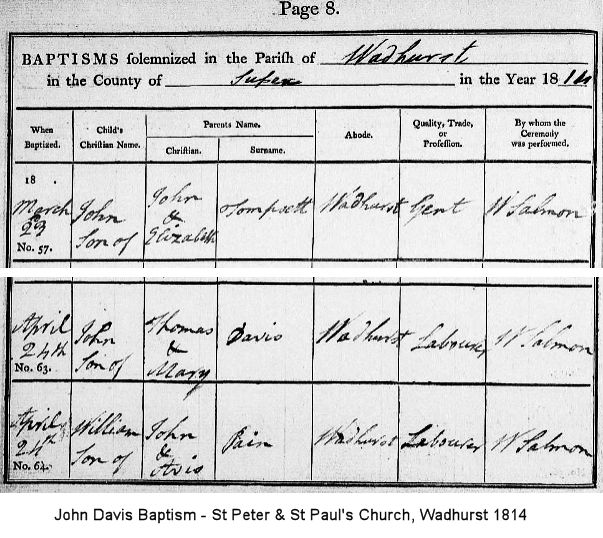 Page 8.
BAPTISMS solemnized in the Parish of Wadhurst
in the County of Sussex in the Year 1814
When Baptized. Child's Christian Name. Parents Name. Christian. Surname. Abode. Quality, Trade, or Profession. By whom the Ceremony was performed.
18 .
March John Son of John & Elizabeth Tompsett Wadhurst Gent W Salmon
No. 57.
April 24th John Son of Thomas & Mary Davis Wadhurst Labourer W Salmon
No. 63.
April 24th William Son of John & Avis Pain Wadhurst Labourer W Salmon
No. 64.
John Davis Baptism - St Peter & St Paul's Church, Wadhurst 1814